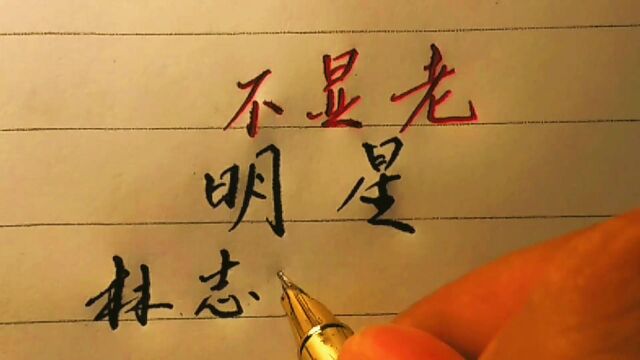 不显老
明星
林志